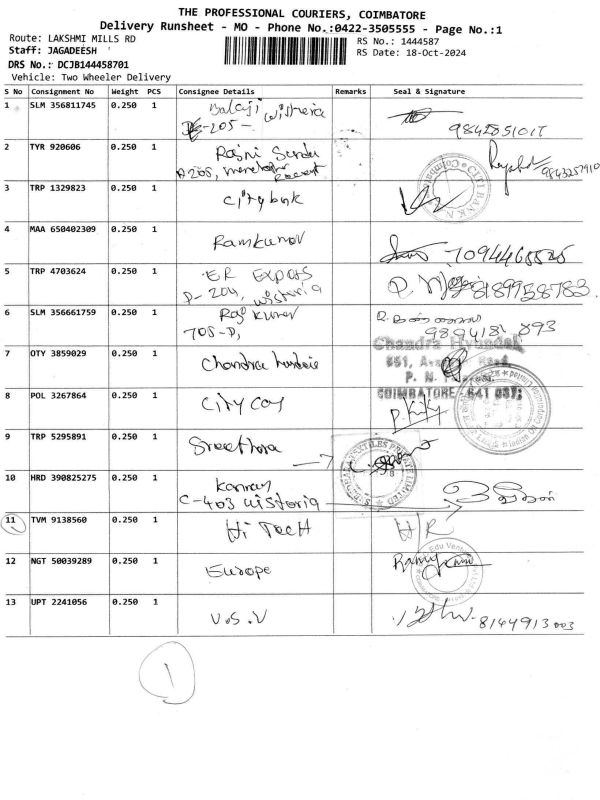 THE PROFESSIONAL COURIERS, COIMBATORE
Delivery Runsheet - MO - Phone No.:0422-3505555 - Page No.:1
Route: LAKSHMI MILLS RD
RS No.: 1444587
Staff: JAGADEESH
RS Date: 18-Oct-2024
DRS No.: DCJB144458701
Vehicle: Two Wheeler Delivery
S No Consignment No Weight PCS Consignee Details Remarks Seal & Signature
1 SLM 356811745 0.250 1 Balaji wisteria
-205-
2 TYR 920606 0.250 1 Rajni
9843257910
3 TRP 1329823 0.250 1 Citybank
CITI BANK N.
4 MAA 650402309 0.250 1 Ramkumar
5 TRP 4703624 0.250 1 ER Exports
D-204, wistoria
8189938783
6 SLM 356661759 0.250 1 Raj kumar
705-D,
9894181 893
7 OTY 3859029 0.250 1 Chandra hundai
Chandra Hyundai
851,
P. N.
COIMBATORE - 641 037;
8 POL 3267864 0.250 1 City
9 TRP 5295891 0.250 1 Sreethara
TEXTILES PRIVATE LIMITED
10 HRD 390825275 0.250 1
C-403 wistoria
11 TVM 9138560 0.250 1 Hi Tech H/R
12 NGT 50039289 0.250 1 Europe
Edu Ventures
13 UPT 2241056 0.250 1 V.S.V
8144913003
1